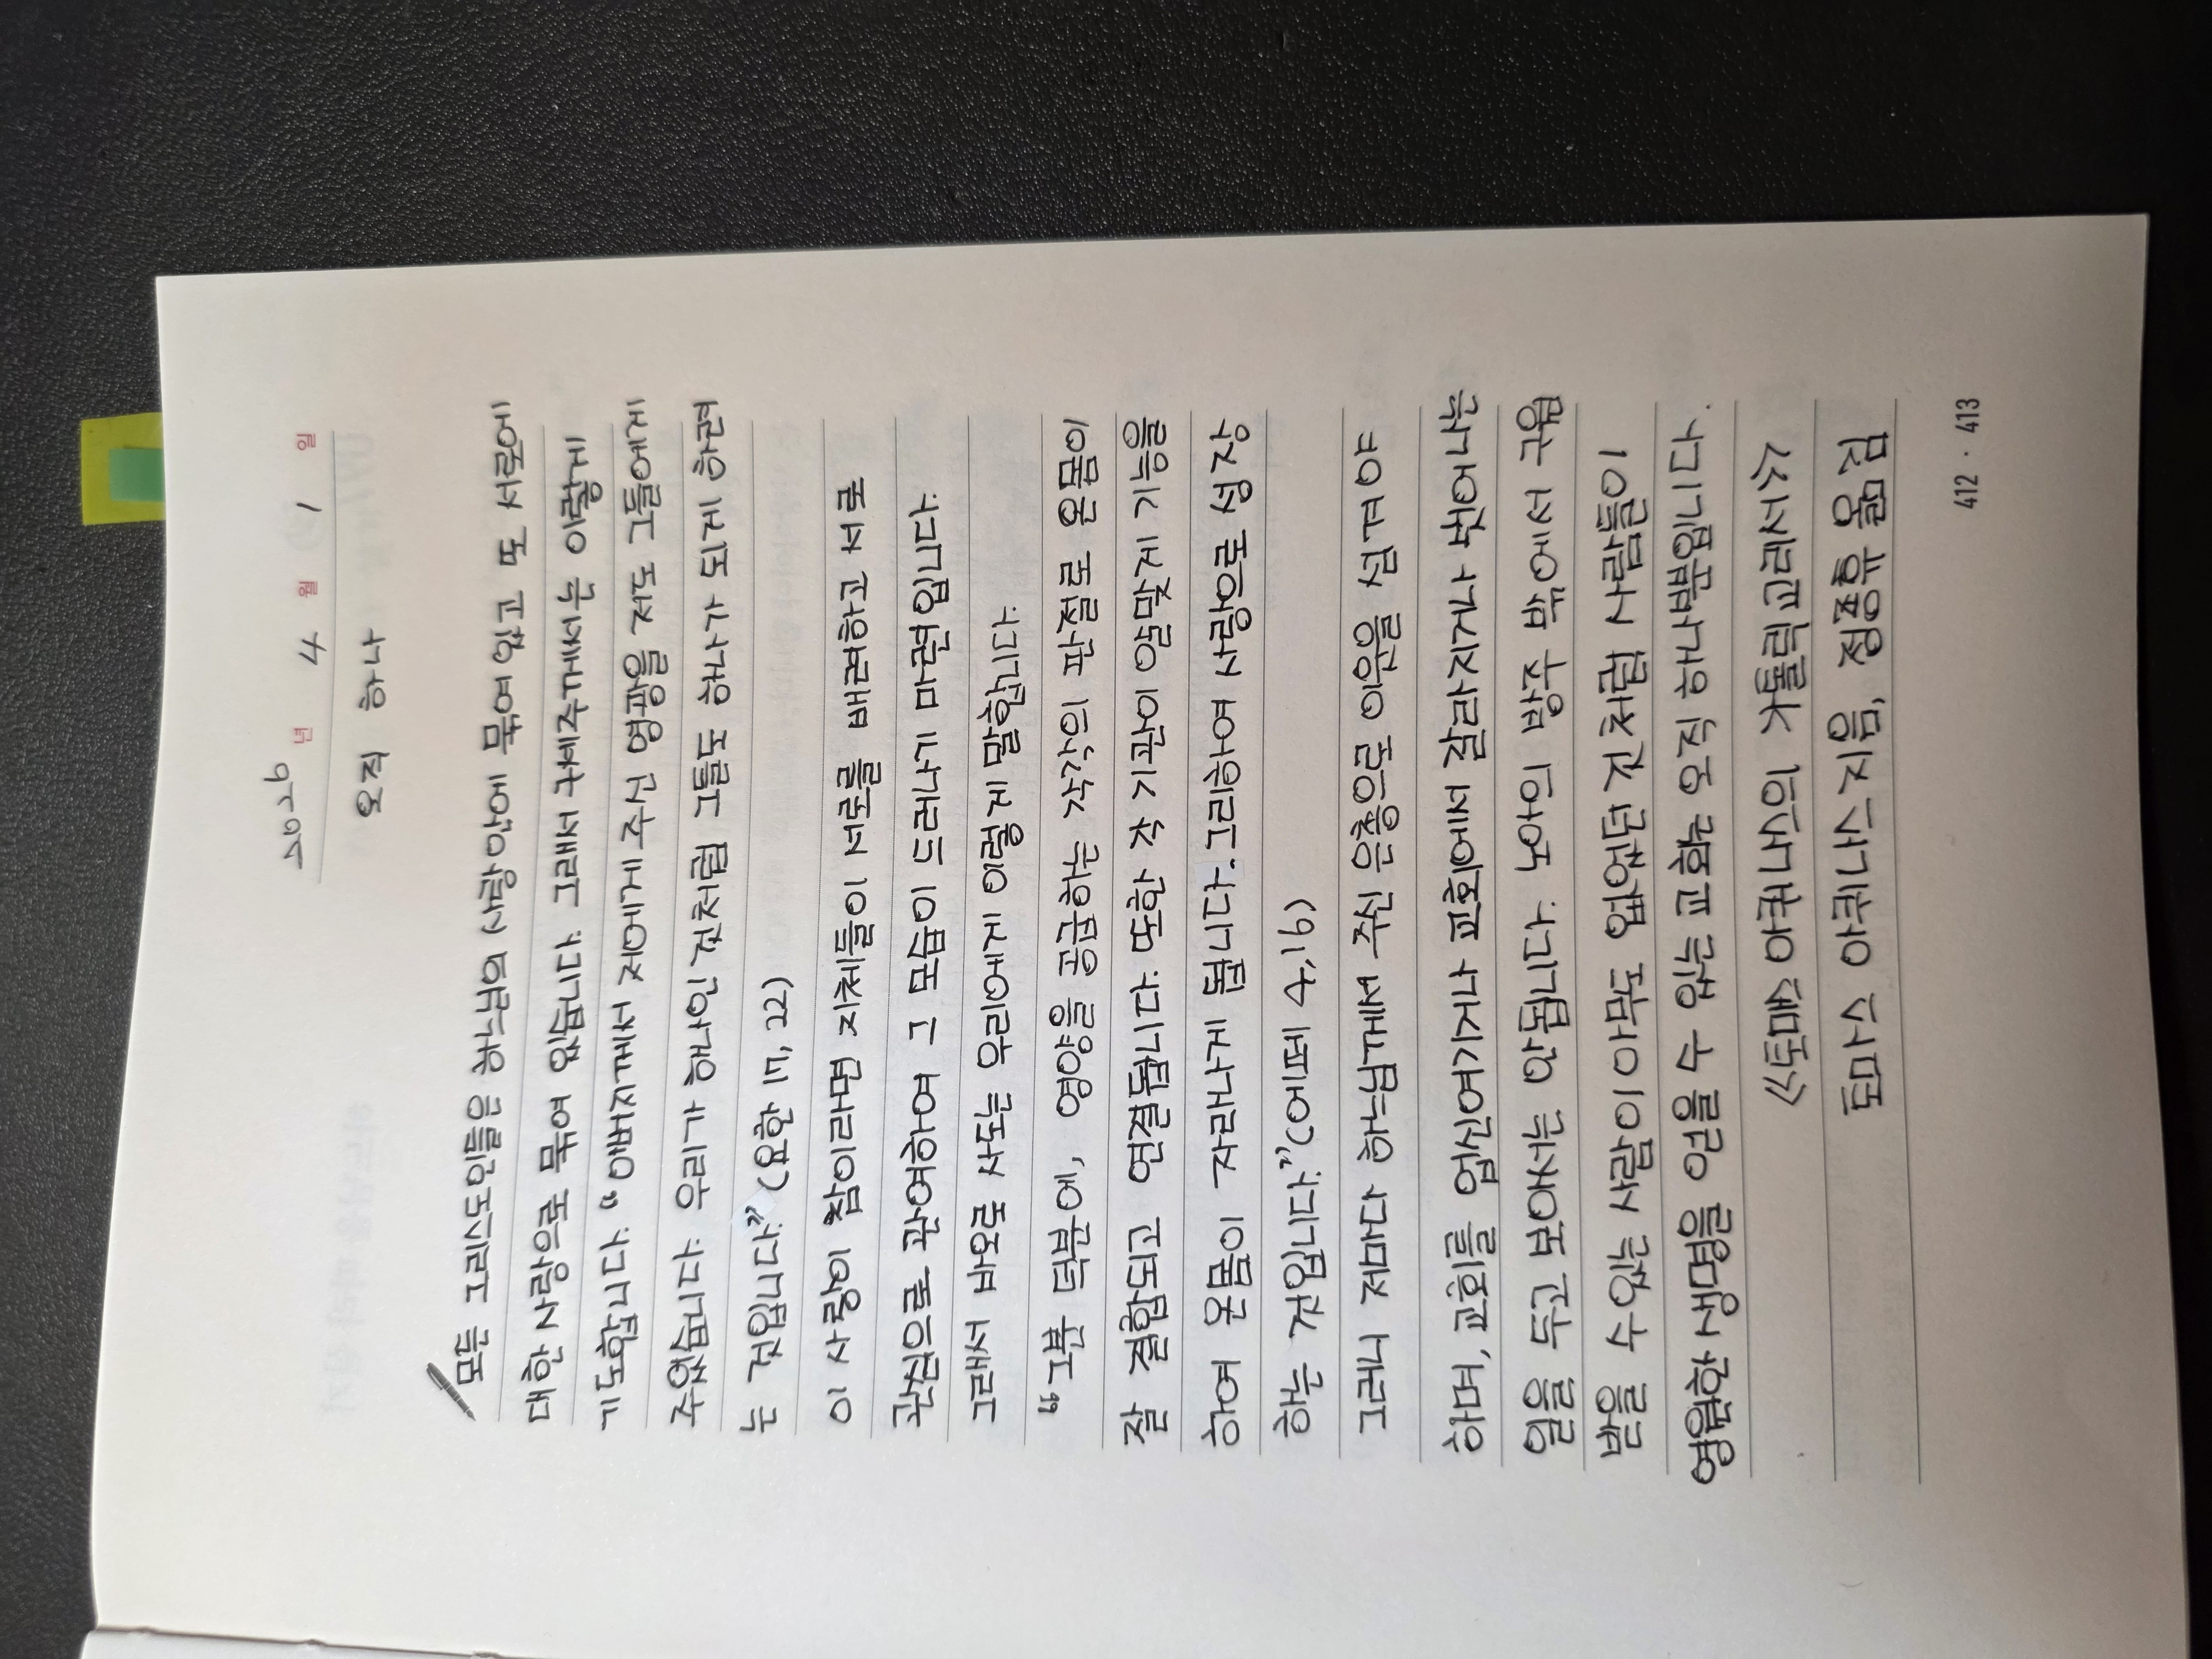 2026년 4월 1일
오직 하나
모든 그리스도인들은 하느님의 사랑안에 묶여 있고 또 서로에
대한 사랑으로 묶여 있습니다. 그래서 구세주께서는 이렇게
기도합니다. "아버지께서 저에게 주신 영광을 저도 그들에게
주었습니다. 우리가 하나인 것처럼 그들도 하나가 되게 하려
는 것입니다." (요한 17, 22)
이 사랑이 참이라면 지체들이 서로를 배려하고 서로
관심으로 관여하여 그 모습이 드러나기 마련입니다.
그래서 바오로 사도는 우리에게 이렇게 말합니다.
"그분 덕분에, 영양을 공급하는 각각의 관절로 온몸이
잘 결합되고 연결됩니다. 또한 각 기관이 알맞게 기능을
하여 온몸이 자라나게 됩니다. 그리하여 사랑으로 성장
하는 것입니다."(에페 4,16)
그러니 저마다 하느님께서 주신 은총으로 이웃을 섬겨야
하며, 교회를 업신여기거나 교회에서 갈라지거나 벗어나는
일을 두고 보아서는 안됩니다. 노아의 방주 밖에서 구원
받을 수 있는 사람이 아무도 없었던 것처럼 사람들이
영원한 생명을 얻을 수 있는 교회 또한 오직 하나뿐입니다.
<<사도신경 해설>>
토마스 아퀴나스 지음, 정종휴 옮김
412 · 413